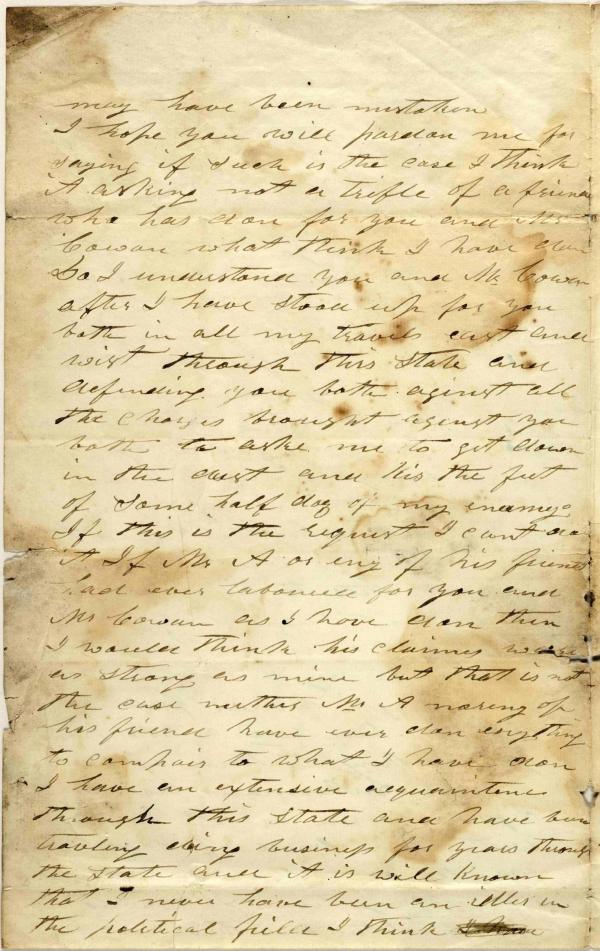 may have been mistaken
I hope you will pardon me for
saying if such is the case I think
it asking not a trifle of a friend
who has don for you and Mr
Cowan what think I have don
Do I understand you and Mr Cowan
after I have stood up for you
both in all my travels east and
wist through this State and
defending you both aginst all
the charges brought aginst you
both to aske me to get down
in the dust and kis the feet
of some half doz of my enamys
If this is the request I cant do
it If Mr A or eny of his friends
had ever laboured for you and
Mr Cowan as I have don then
I would think his claimes ware
as strong as mine but that is not
the case nuther Mr A nor eny of
his friend have ever don enything
to compair to what I have don
I have an extensive acquaintence
through this state and have been
traveling doing business for years through
the state and it is will known
that I never have been an idler in
the political field I think